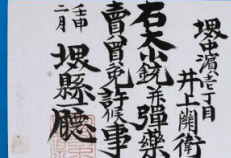 堺中濱壱丁目
井上關衛
右大小銃并彈藥
賣買免許候事
壬申
二月
堺縣廳